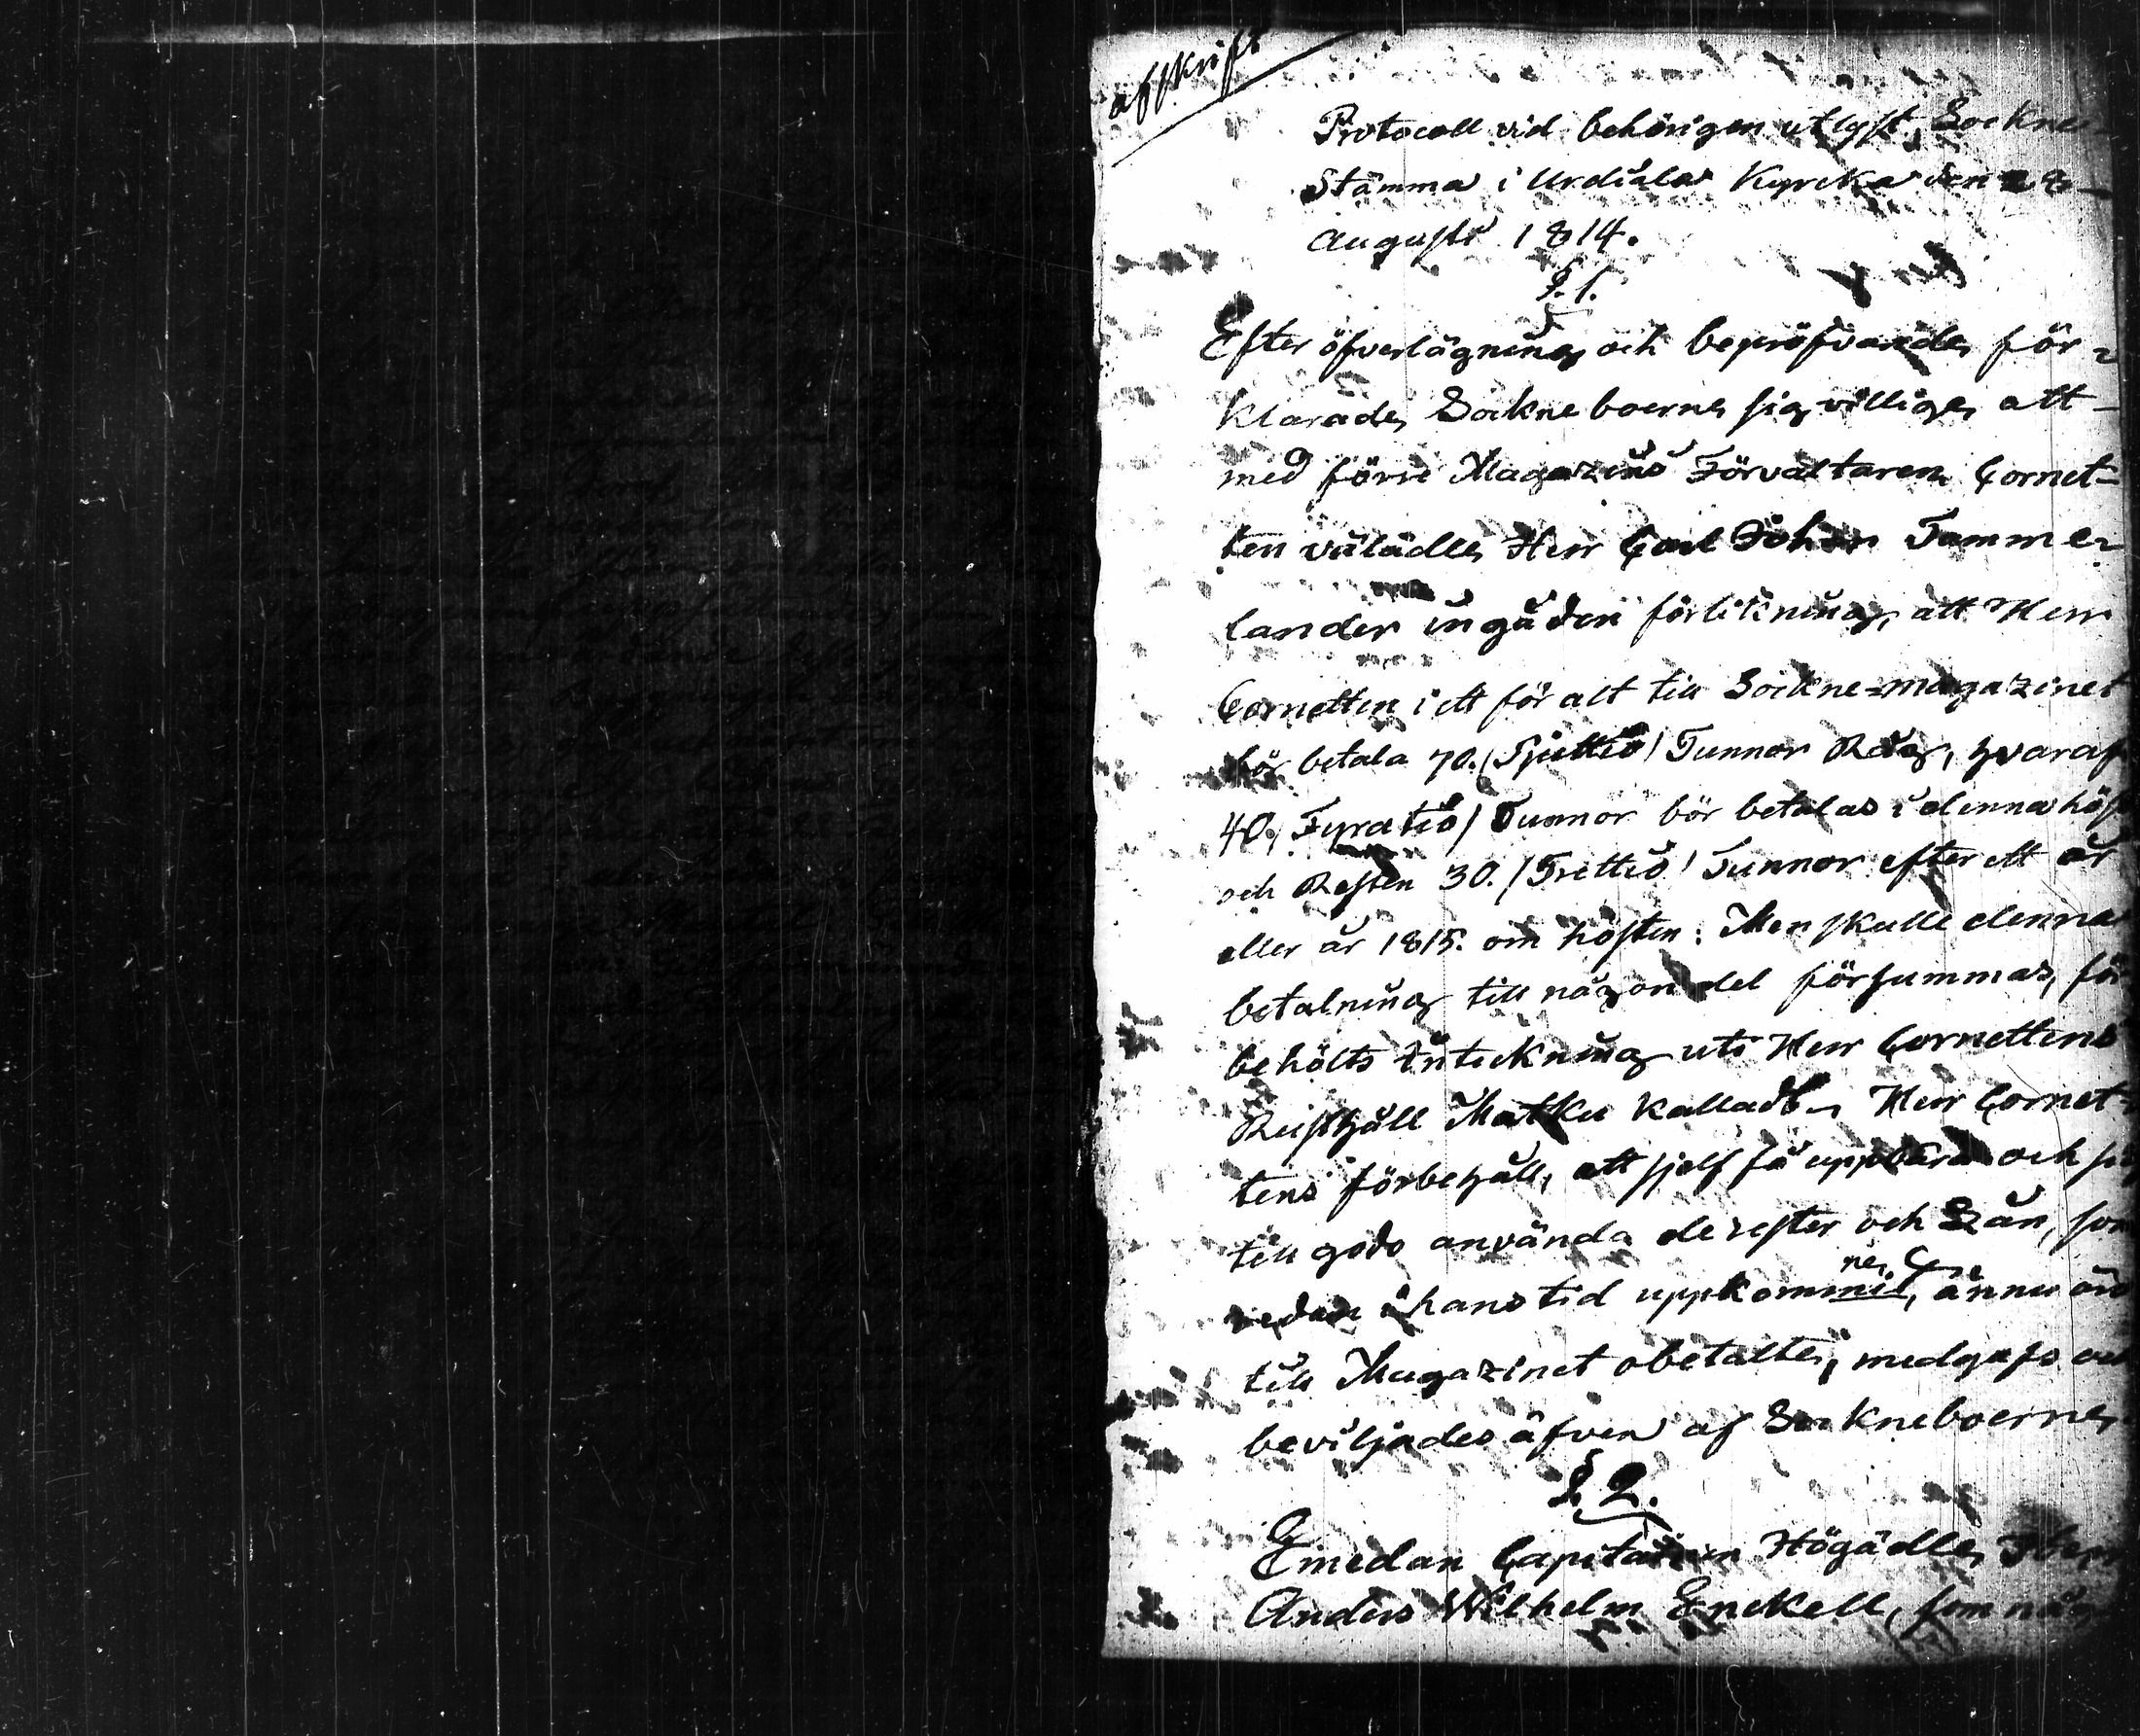 afskrift
Protocoll vid behörigen utlyst Sockne-
Stämma i Urdiala Kyrcka den 28
Augusti 1814.
§. 1.
Efter öfverlägning och bepröfvande för-
klarade Sockneboerne sig villige att
med förre Magazins Förvaltaren Cornet-
ten välädle Herr Carl Johan Tamme-
lander ingå den förlikning, att Herr
Cornetten i ett för alt till Sockne-magazinet
bör betala 70. (Sjuttio) Tunnor Råg, hvaraf
40. (Fyratio) Tunnor bör betalas i denna höst
och Resten 30. (Trettio) Tunnor efter ett år
eller år 1815. om hösten: Men skulle denna
betalning till någon del försummas, för
behölts Inteckning uti Herr Cornettens
Rusthåll Matku kalladt. Herr Cornet-
tens förbehåll, att sjelf få uppbära och sig
till godo använda de rester och Lån, som
redan i hans tid uppkommit, ännu äro
ne
till Magazinet obetalte, medgafs och
beviljades äfven af Sockneboerne
§. 2.
Emedan Capitainen Högädle Herr
Anders Wilhelm Enckell, som